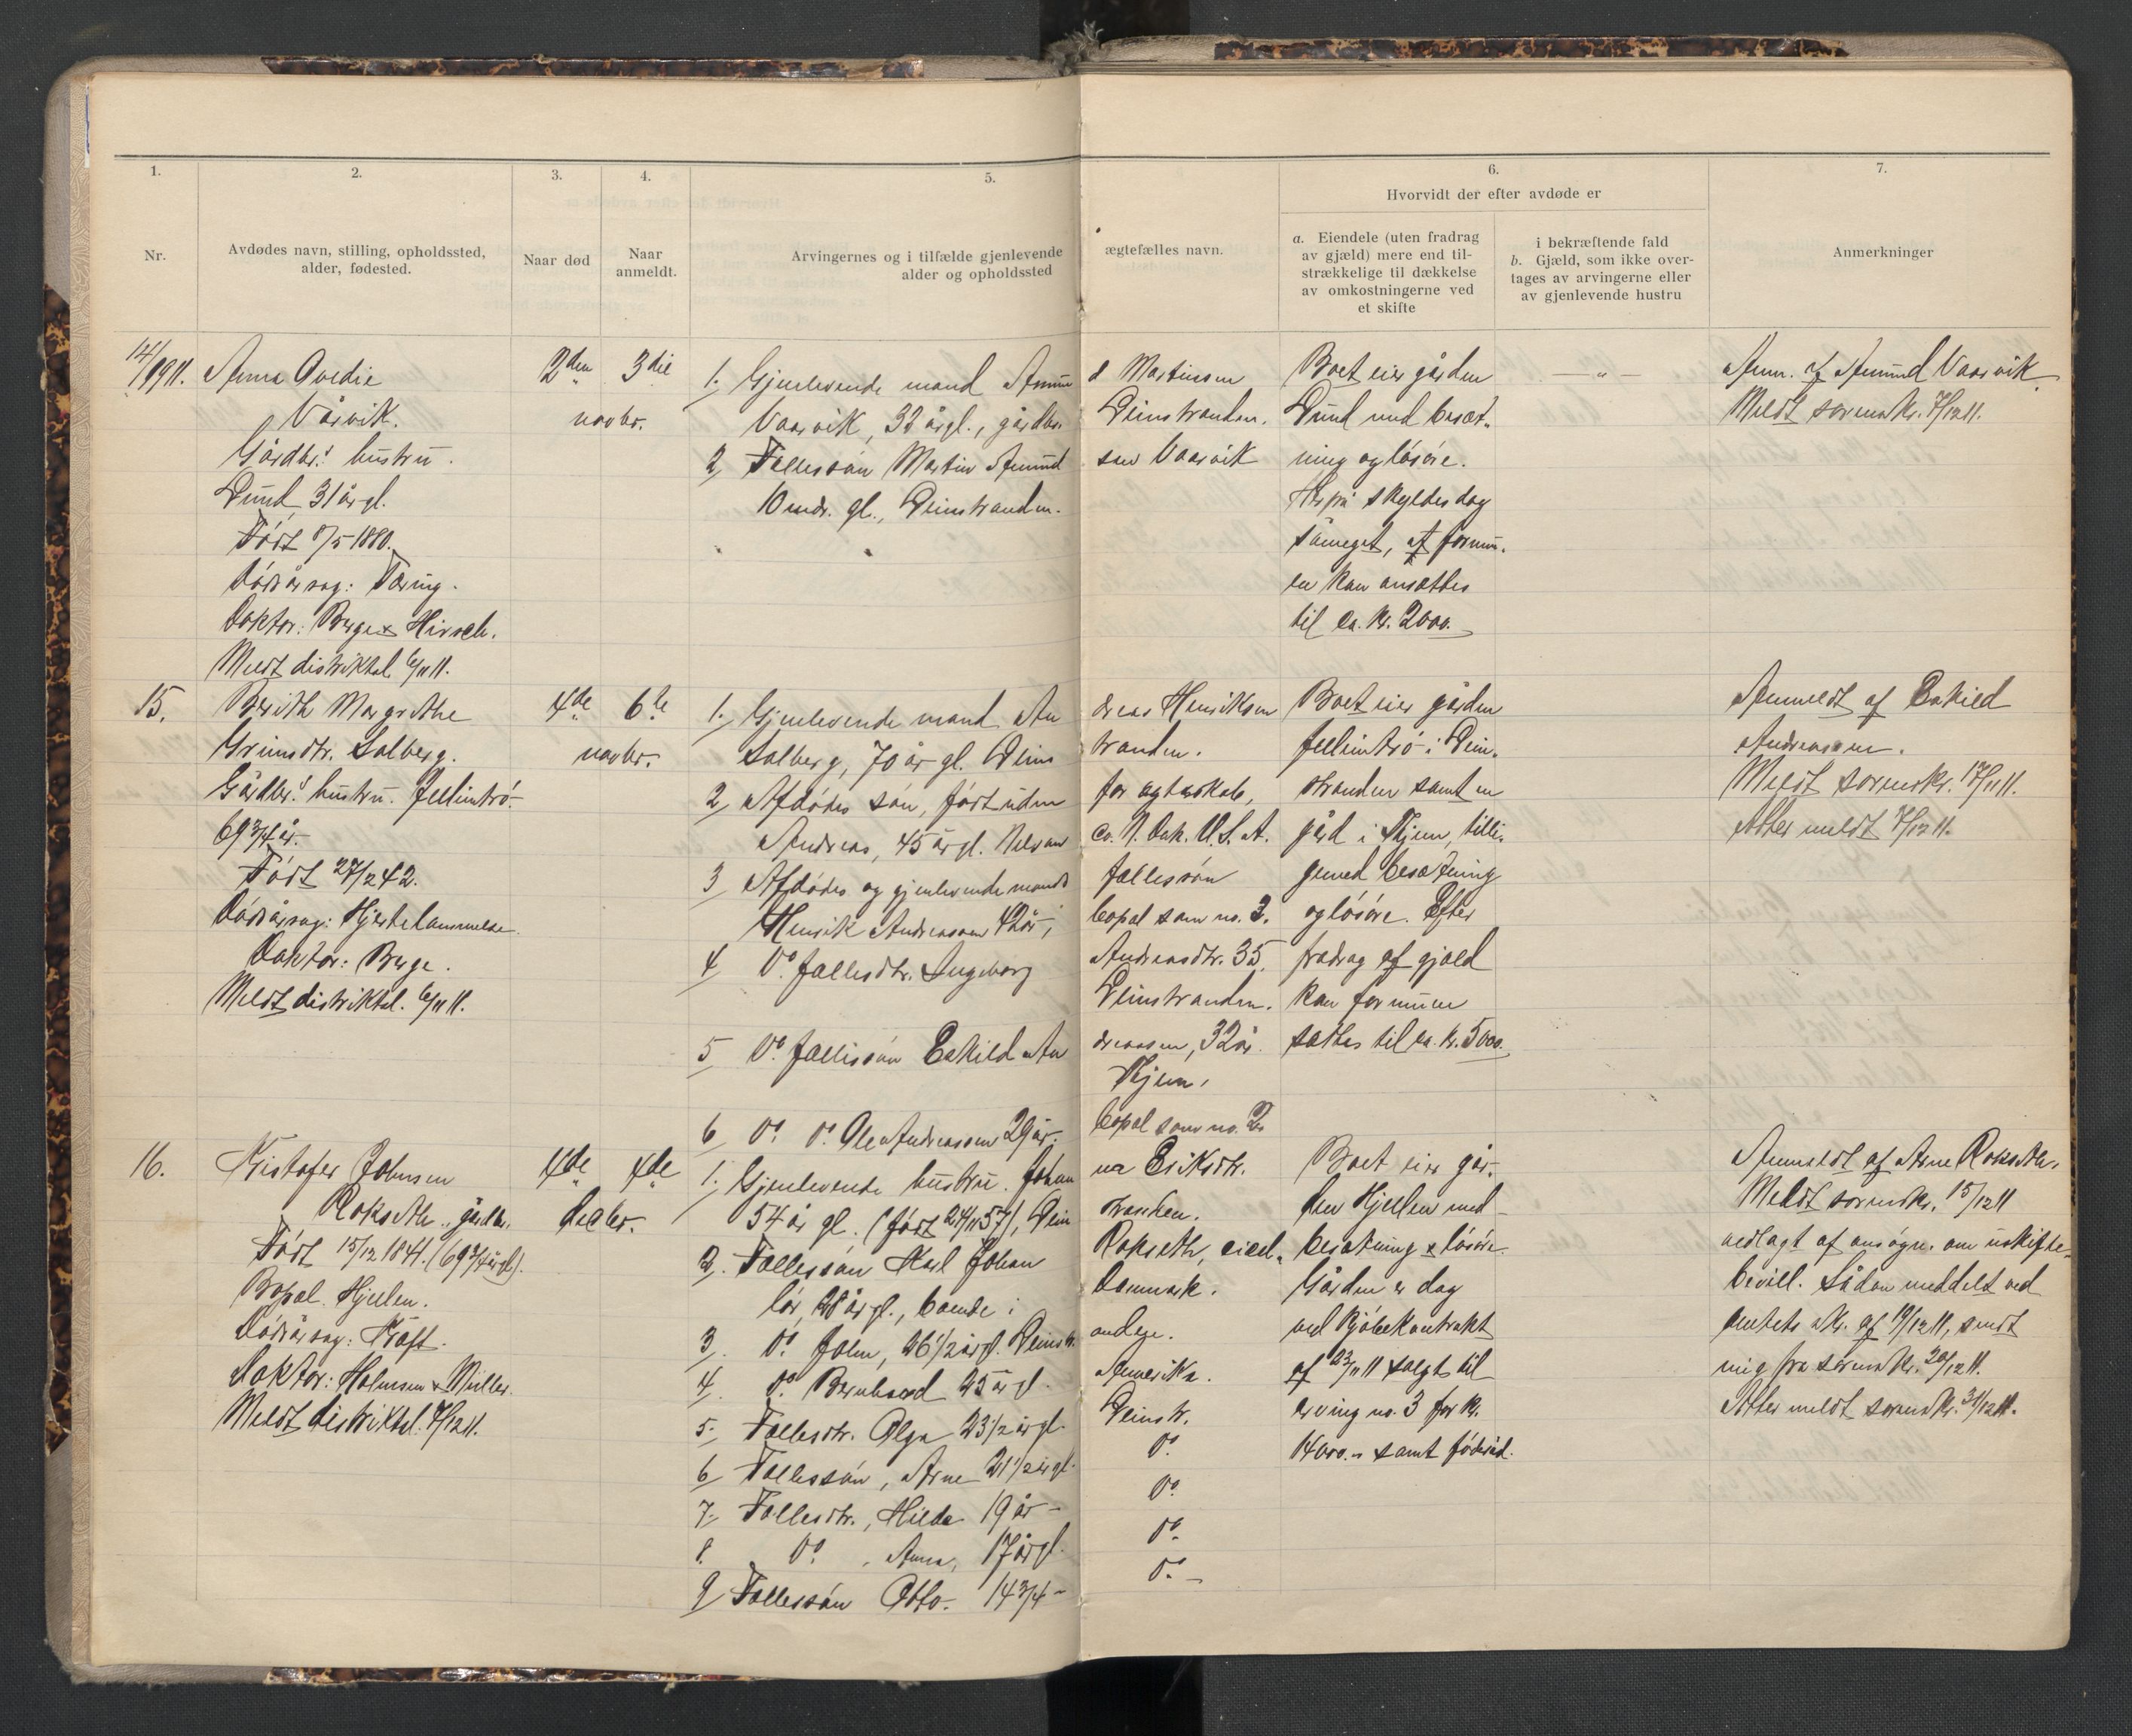 1.
2.
3.
4.
5.
6.
7.
Hvorvidt der efter avdøde er
Nr.
Avdødes navn, stilling, opholdssted,
alder, fødested.
Naar død
Naar
anmeldt.
Arvingernes og i tilfælde gjenlevende ægtefælles navn.
alder og opholdssted
a. Eiendele (uten fradrag
av gjæld) mere end til-
strækkelige til dækkelse
av omkostningerne ved
et skifte
i bekræftende fald
b. Gjæld, som ikke over-
tages av arvingerne eller
av gjenlevende hustru
Anmerkninger
14/1911.
Anna Ovedie
Vårvik.
Gårdbr.s hustru.
31 år gl.
Født 8/5 1880.
Dødsårsag: Tæring.
Doktor: Berge & Hirsch.
Meldt distriktsl. 6/11 11.
2den
novbr.
3die
1. Gjenlevende mand Amund Martinsen
Vaarvik, 32 år gl., gårdbr. Leinstranden.
2, Fællessøn Martin Amundsen Vaarvik
10 mdr. gl., Leinstranden.
Boet eier gården
med besæt-
ning og løsøre.
Herpå skyldes dog
såmeget, at formu-
en kan ansættes
til ca. kr. 2000.
— „ —
Anm. af Amund Vaarvik
Meldt sorenskr. 7/12 11.
15.
Berith Margrethe
Grimsdtr. Solberg.
Gårdbr.s hustru.
69 3/4 år.
Født 27/2 42.
Dødsårsag: Hjertelammelse.
Doktor: Berge.
Meldt distriktsl. 6/11 11.
4de
novbr.
6te
1. Gjenlevende mand Andreas Henriksen
Solberg, 70 år gl. Leinstranden.
2, Afdødes søn, født uden for ægteskab,
Andreas, 45 år gl. Co. N. Dak. U.S.A.
3, Afdødes og gjenlevende mands fællessøn
Henrik Andreassen 42 år, bopæl som no. 2.
4, Do. fællesdtr. Ingeborg Andreasdtr. 35,
Leinstranden.
5, Do. fællessøn Eskild Andreassen, 32 år.
6, Do. Do. Ole Andreassen 29 år. bopæl som no. 2
Boet eier gården
i Lein-
stranden samt en
gård i tilli-
gemed besætning
og løsøre. Efter
fradrag af gjæld
kan formuen
sættes til ca. kr. 5000.
Anmeldt af Eskild
Andreassen.
Meldt sorenskr. 17/11 11.
Atter meldt 7/12 11.
16.
Kristofer Johnsen
Rokseth, gårdbr.
Født 15/12 1841. (69 3/4 år gl).
Bopæl. Hjellen.
Dødsårsag: Kræft.
Doktor: Holmsen & Müller.
Meldt distriktsl. 7/12 11.
4de
decbr.
4de
1. Gjenlevende hustru. Johanna Eriksdtr.
54 år gl. (født 24/11 57), Leinstranden.
2. Fællessøn Karl Johan Rokseth,
28 år gl., boende i Danmark.
3, Do. John, 26 1/2 år gl. Leinstr.
4, Do. Bernhard 25 år gl. Amerika.
5, Fællesdtr. Olga 23 1/2 år gl. Leinstr.
6, Fællessøn, Arne 21 1/2 år gl. Do.
7, Fællesdtr., Hilda 19 år – Do.
8. Do. , Anna, 17 år gl. Do.
9, Fællessøn Otto. 14 3/4 – Do. –
Boet eier går-
den Hjellen med
besætning & løsøre.
Gården er dog
ved kjøbekontrakt
af 23/11 11 solgt til
arving no. 3 for kr.
14000.- samt føderåd.
Anmeldt af Arne Rokseth.
Meldt sorenskr. 15/12 11
vedlagt af ansøgn. om uskifte-
bevill. Sådan meddelt ved
amtets skr. af 19/12 11, sendt
mig fra sorenskr. 20/12 11.
Atter meldt sorenskr. 31/12 11.